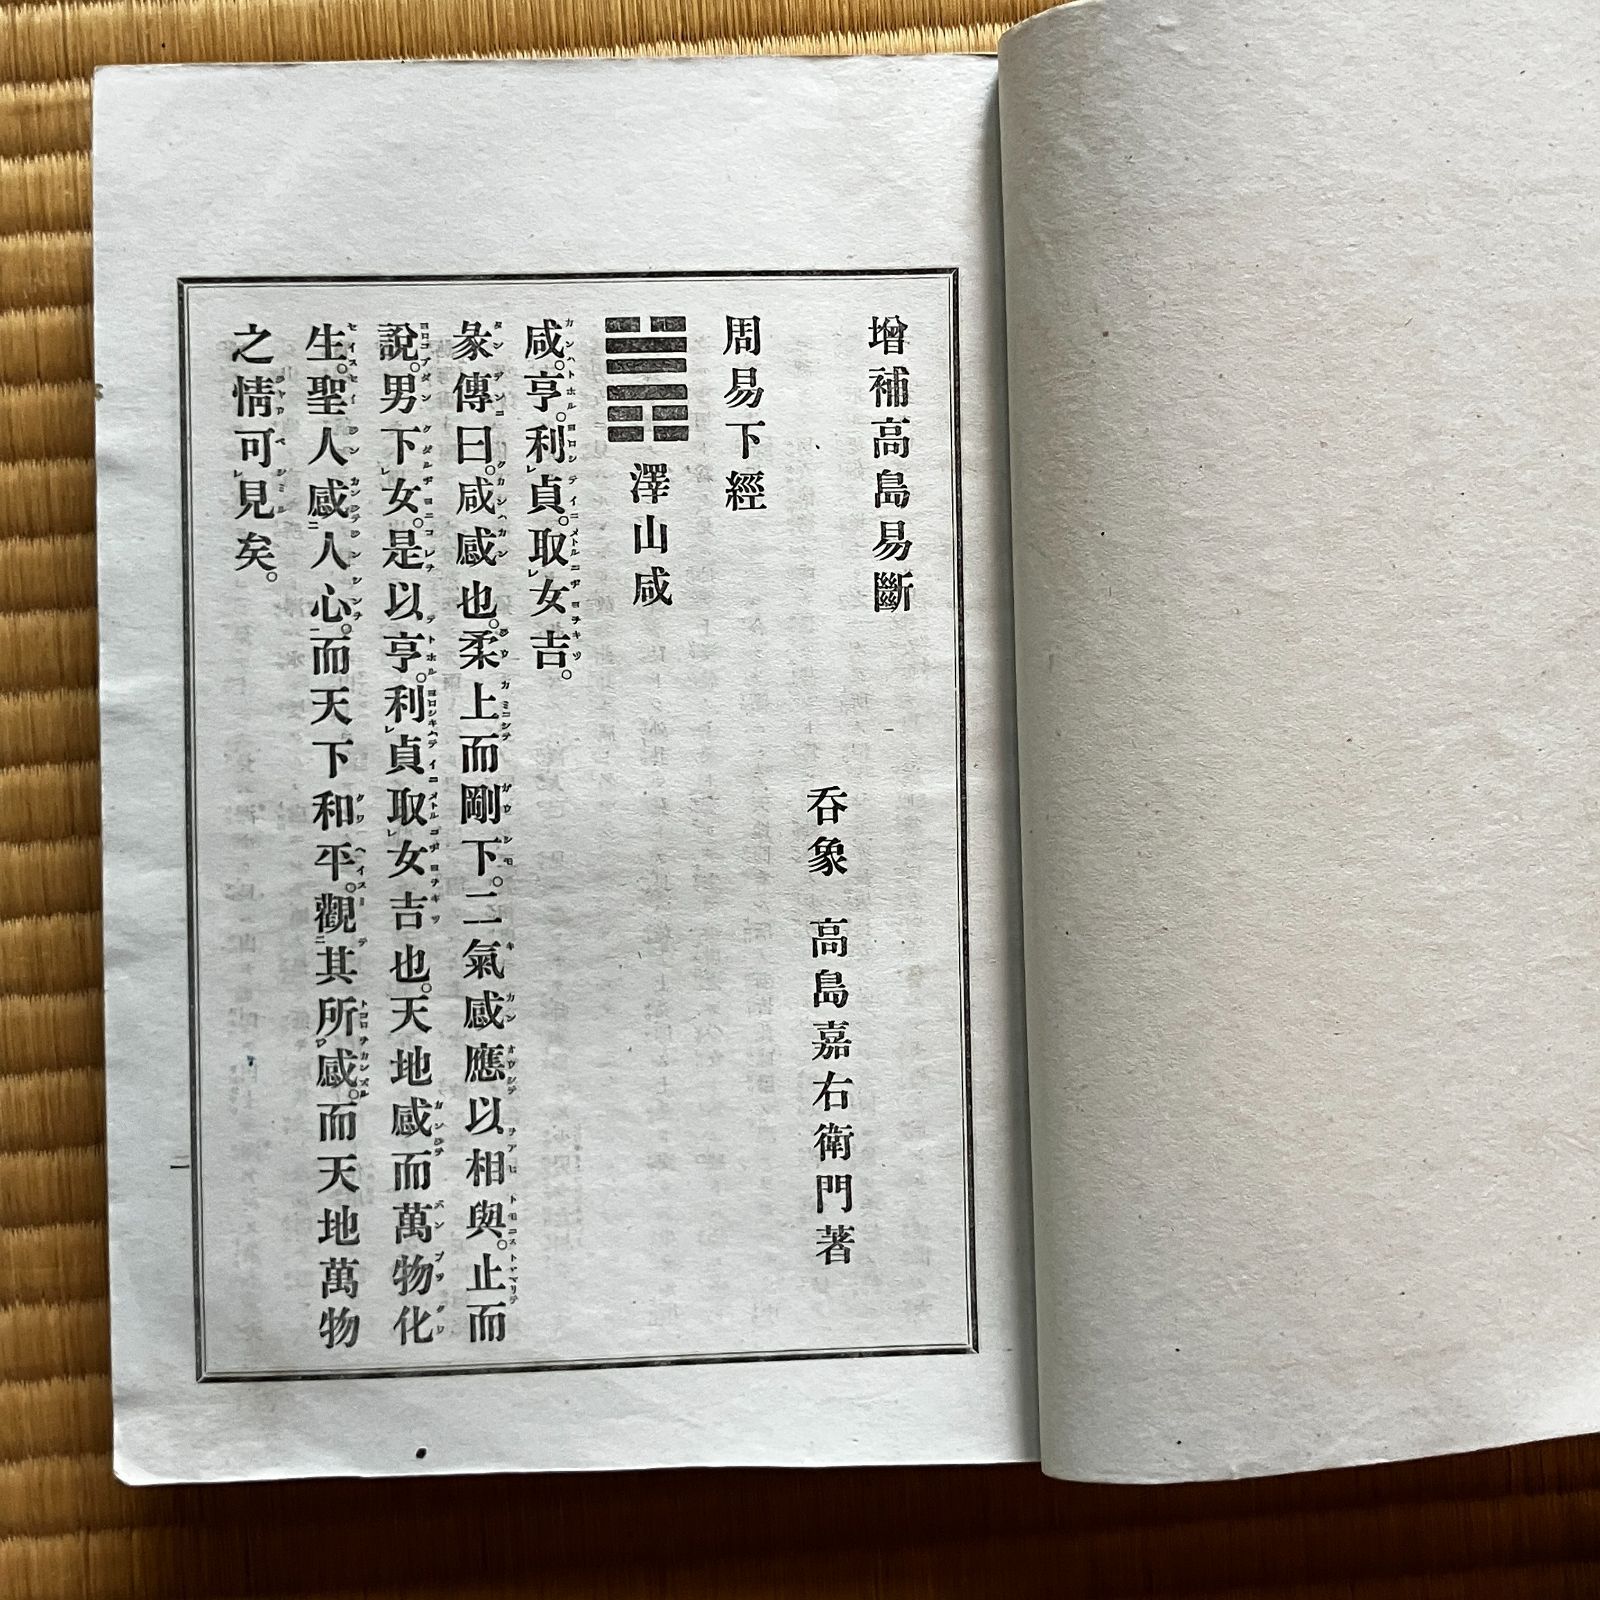 增補高島易斷
吞象 高島嘉右衛門著
周易下經
澤山咸
咸。亨。利貞。取女吉。
彖傳曰。咸感也。柔上而剛下。二氣感應以相與。止而
說。男下女。是以亨。利貞取女吉也。天地感而萬物化
生。聖人感人心。而天下和平。觀其所感。而天地萬物
之情可見矣。
一